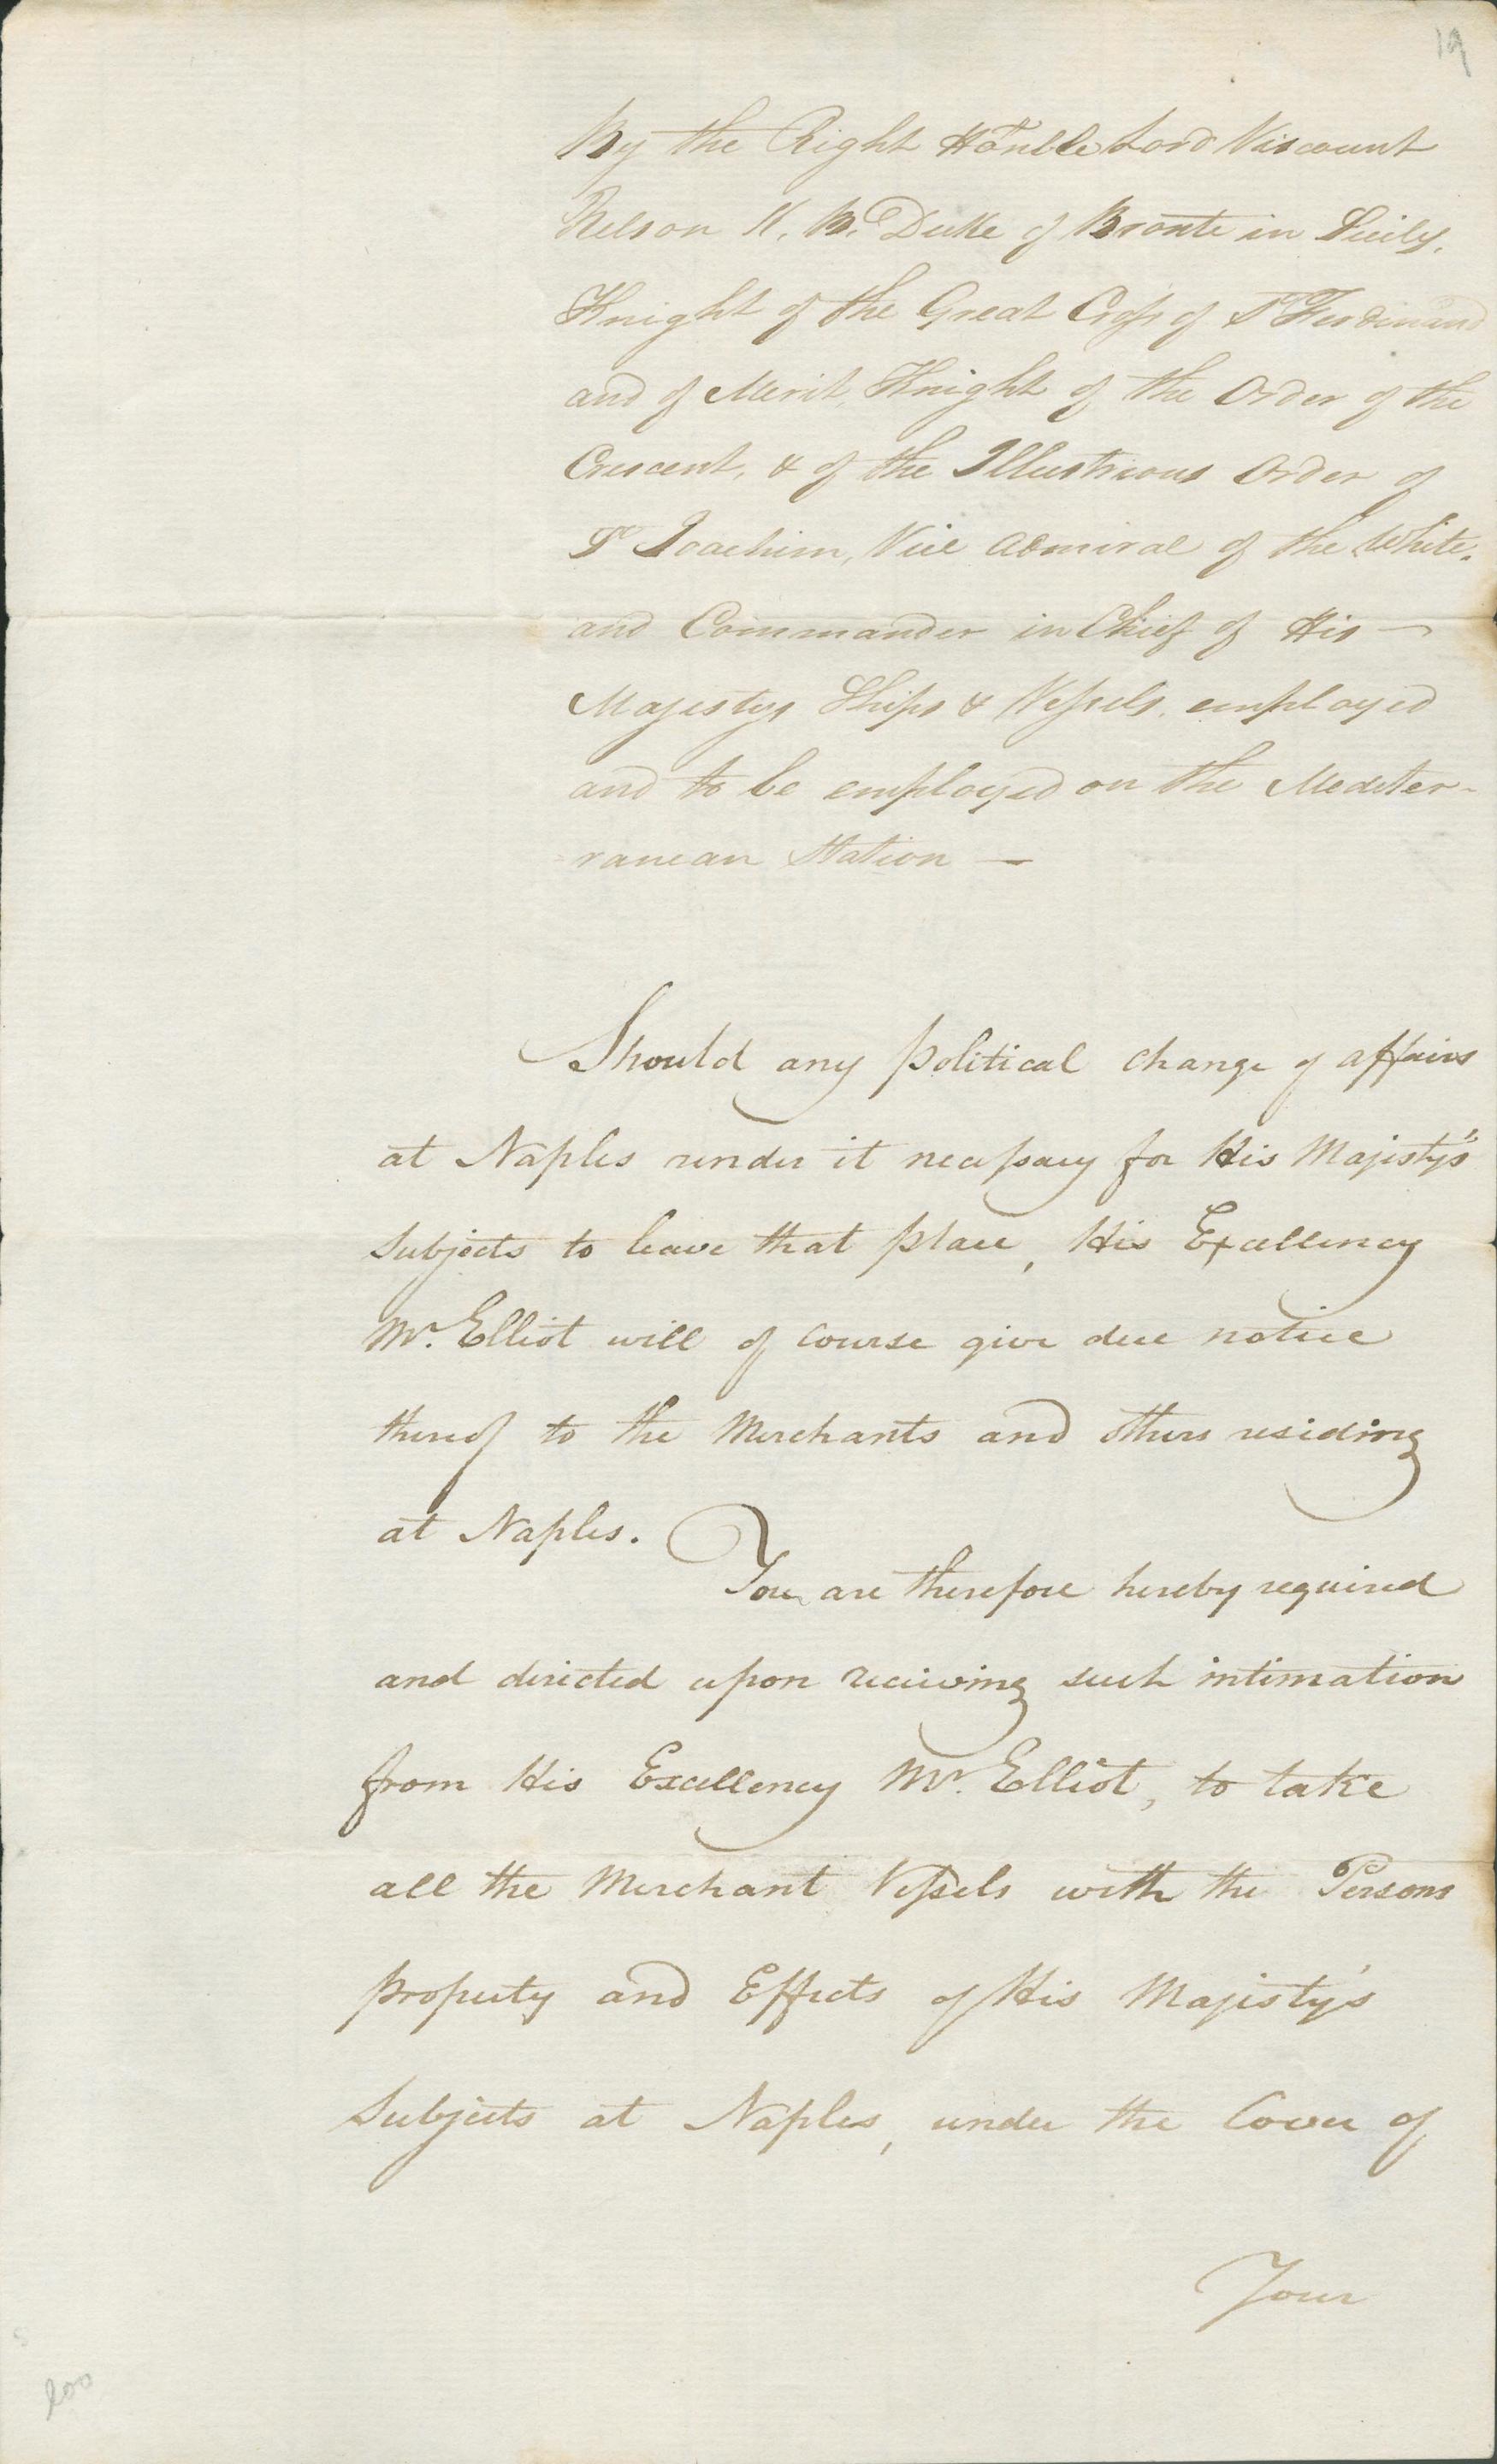 19
By the Right Honble Lord Viscount
Nelson K. B. Duke of Bronte in Sicily,
Knight of the Great Cross of St Ferdinand
and of Merit, Knight of the Order of the
Crescent, & of the Illustrious Order of
St Joachim, Vice Admiral of the White,
and Commander in Chief of His —
Majestys Ships & Vessels, employed
and to be employed on the Mediter-
ranean Station —
Should any political change of affairs
at Naples render it necessary for His Majesty's
Subjects to leave that place, His Excellency
Mr. Elliot will of course give due notice
thereof to the Merchants and others residing
at Naples.
You are therefore hereby required
and directed upon receiving such intimation
from His Excellency Mr. Elliot, to take
all the Merchant Vessels with the Persons
property and Effects of His Majesty's
Subjects at Naples, under the Cover of
Your
200